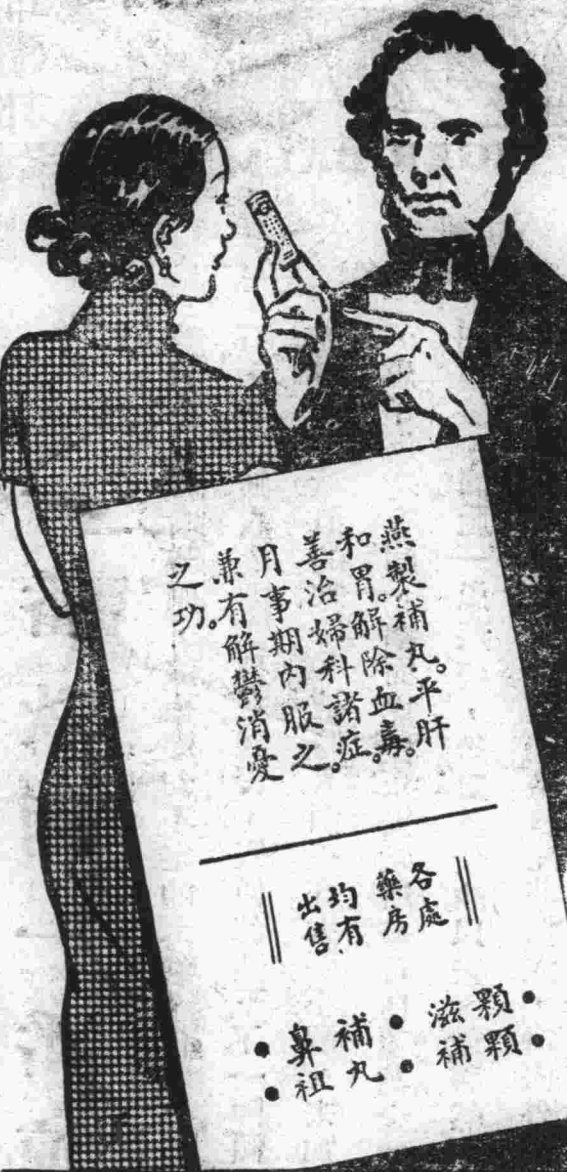 燕製補丸。平肝
和胃。解除血毒。
善治婦科諸症。
月事期內服之。
兼有解鬱消憂
之功。
各處
藥房
均有
出售
顆顆
滋補
補丸
鼻祖